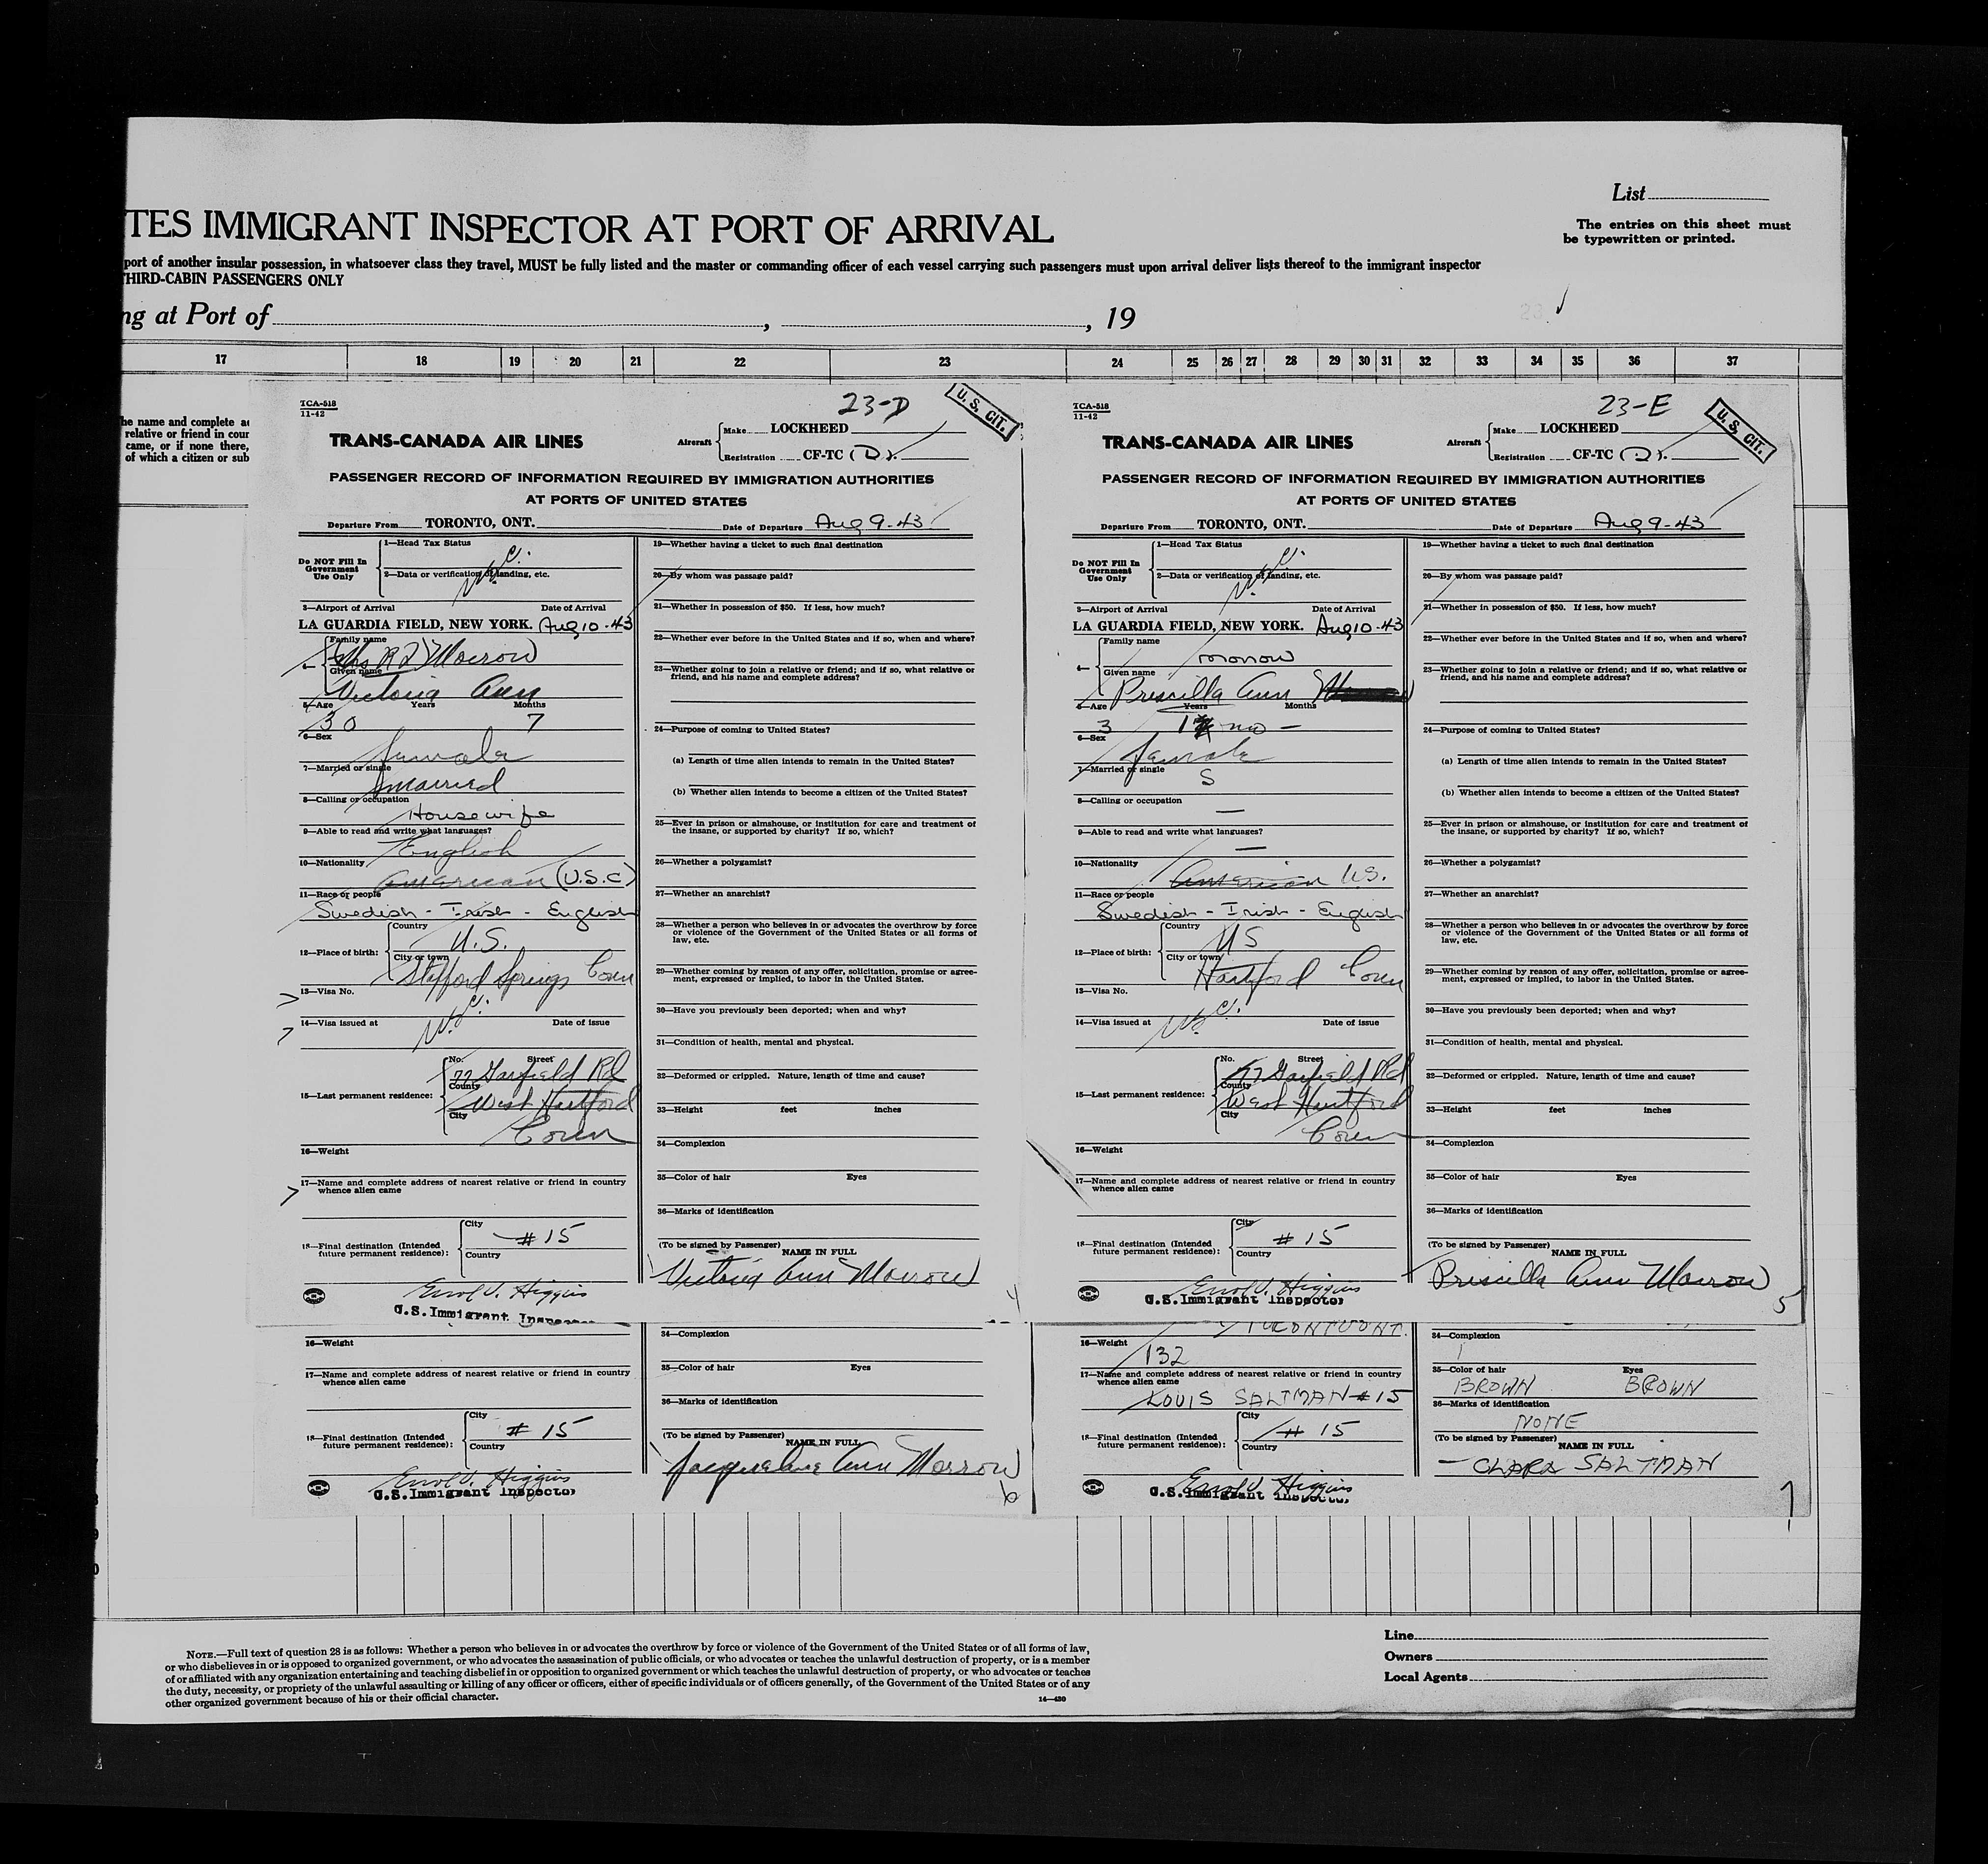 List
TES IMMIGRANT INSPECTOR AT PORT OF ARRIVAL
The entries on this sheet must
be typewritten or printed.
port of another insular possession, in whatsoever class they travel, MUST be fully listed and the master or commanding officer of each vessel carrying such passengers must upon arrival deliver lists thereof to the immigrant inspector
THIRD-CABIN PASSENGERS ONLY
ng at Port of , , 19
17 18 19 20 21 22 23 24 25 26 27 28 29 30 31 32 33 34 35 36 37
he name and complete ad
relative or friend in coun
came, or if none there,
of which a citizen or sub
TCA-518
11-42
23-D
U. S. CIT.
TRANS-CANADA AIR LINES
Aircraft
Make LOCKHEED
Registration CF-TC (D).
PASSENGER RECORD OF INFORMATION REQUIRED BY IMMIGRATION AUTHORITIES
AT PORTS OF UNITED STATES
Departure From TORONTO, ONT. Date of Departure Aug 9-43
Do NOT Fill In
Government
Use Only
1—Head Tax Status
2—Data or verification of landing, etc.
3—Airport of Arrival Date of Arrival
LA GUARDIA FIELD, NEW YORK. Aug 10-43
4— Family name
(Mrs R J) Morrow
Given name
Victoria Ann
5—Age Years Months
30 7
6—Sex
female
7—Married or single
married
8—Calling or occupation
Housewife
9—Able to read and write what languages?
English
10—Nationality
American (U.S.C)
11—Race or people
Swedish - Irish - English
12—Place of birth:
Country
U.S.
City or town
Stafford Springs Conn
13—Visa No.
14—Visa issued at Date of issue
15—Last permanent residence:
No. Street
77 Garfield Rd
County
West Hartford
City
Conn
16—Weight
17—Name and complete address of nearest relative or friend in country
whence alien came
18—Final destination (Intended
future permanent residence):
City
# 15
Country
Errol V. Higgins
U.S. Immigrant Inspector
19—Whether having a ticket to such final destination
20—By whom was passage paid?
21—Whether in possession of $50. If less, how much?
22—Whether ever before in the United States and if so, when and where?
23—Whether going to join a relative or friend; and if so, what relative or
friend, and his name and complete address?
24—Purpose of coming to United States?
(a) Length of time alien intends to remain in the United States?
(b) Whether alien intends to become a citizen of the United States?
25—Ever in prison or almshouse, or institution for care and treatment of
the insane, or supported by charity? If so, which?
26—Whether a polygamist?
27—Whether an anarchist?
28—Whether a person who believes in or advocates the overthrow by force
or violence of the Government of the United States or all forms of
law, etc.
29—Whether coming by reason of any offer, solicitation, promise or agree-
ment, expressed or implied, to labor in the United States.
30—Have you previously been deported; when and why?
31—Condition of health, mental and physical.
32—Deformed or crippled. Nature, length of time and cause?
33—Height feet inches
34—Complexion
35—Color of hair Eyes
36—Marks of identification
(To be signed by Passenger)
NAME IN FULL
Victoria Ann Morrow
4
TCA-518
11-42
23-E
U. S. CIT.
TRANS-CANADA AIR LINES
Aircraft
Make LOCKHEED
Registration CF-TC (D).
PASSENGER RECORD OF INFORMATION REQUIRED BY IMMIGRATION AUTHORITIES
AT PORTS OF UNITED STATES
Departure From TORONTO, ONT. Date of Departure Aug 9-43
Do NOT Fill In
Government
Use Only
1—Head Tax Status
2—Data or verification of landing, etc.
3—Airport of Arrival Date of Arrival
LA GUARDIA FIELD, NEW YORK. Aug 10-43
4— Family name
Morrow
Given name
Priscilla Ann
5—Age Years Months
3 mo —
6—Sex
female
7—Married or single
S
8—Calling or occupation
—
9—Able to read and write what languages?
—
10—Nationality
American U.S.
11—Race or people
Swedish - Irish - English
12—Place of birth:
Country
US
City or town
Hartford Conn
13—Visa No.
14—Visa issued at Date of issue
15—Last permanent residence:
No. Street
77 Garfield Rd
County
West Hartford
City
Conn
16—Weight
17—Name and complete address of nearest relative or friend in country
whence alien came
18—Final destination (Intended
future permanent residence):
City
# 15
Country
Errol V. Higgins
U.S. Immigrant Inspector
19—Whether having a ticket to such final destination
20—By whom was passage paid?
21—Whether in possession of $50. If less, how much?
22—Whether ever before in the United States and if so, when and where?
23—Whether going to join a relative or friend; and if so, what relative or
friend, and his name and complete address?
24—Purpose of coming to United States?
(a) Length of time alien intends to remain in the United States?
(b) Whether alien intends to become a citizen of the United States?
25—Ever in prison or almshouse, or institution for care and treatment of
the insane, or supported by charity? If so, which?
26—Whether a polygamist?
27—Whether an anarchist?
28—Whether a person who believes in or advocates the overthrow by force
or violence of the Government of the United States or all forms of
law, etc.
29—Whether coming by reason of any offer, solicitation, promise or agree-
ment, expressed or implied, to labor in the United States.
30—Have you previously been deported; when and why?
31—Condition of health, mental and physical.
32—Deformed or crippled. Nature, length of time and cause?
33—Height feet inches
34—Complexion
35—Color of hair Eyes
36—Marks of identification
(To be signed by Passenger)
NAME IN FULL
Priscilla Ann Morrow
5
16—Weight
17—Name and complete address of nearest relative or friend in country
whence alien came
18—Final destination (Intended
future permanent residence):
City
# 15
Country
Errol V. Higgins
U.S. Immigrant Inspector
34—Complexion
35—Color of hair Eyes
36—Marks of identification
(To be signed by Passenger)
NAME IN FULL
Jacqueline Ann Morrow
6
TORONTO ONT.
16—Weight
132
17—Name and complete address of nearest relative or friend in country
whence alien came
LOUIS SALTMAN # 15
18—Final destination (Intended
future permanent residence):
City
# 15
Country
Errol V. Higgins
U.S. Immigrant Inspector
34—Complexion
35—Color of hair Eyes
BROWN BROWN
36—Marks of identification
NONE
(To be signed by Passenger)
NAME IN FULL
CLARA SALTMAN
7
NOTE.—Full text of question 28 is as follows: Whether a person who believes in or advocates the overthrow by force or violence of the Government of the United States or of all forms of law,
or who disbelieves in or is opposed to organized government, or who advocates the assassination of public officials, or who advocates or teaches the unlawful destruction of property, or is a member
of or affiliated with any organization entertaining and teaching disbelief in or opposition to organized government or which teaches the unlawful destruction of property, or who advocates or teaches
the duty, necessity, or propriety of the unlawful assaulting or killing of any officer or officers, either of specific individuals or of officers generally, of the Government of the United States or of any
other organized government because of his or their official character.
14—430
Line
Owners
Local Agents